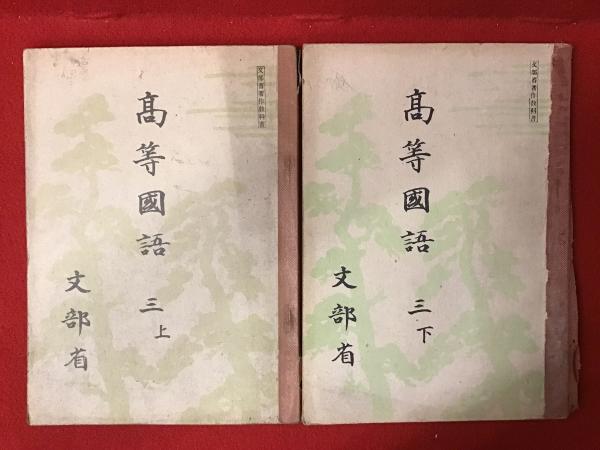 文部省著作教科書
高等國語
三上
文部省
文部省著作教科書
高等國語
三下
文部省